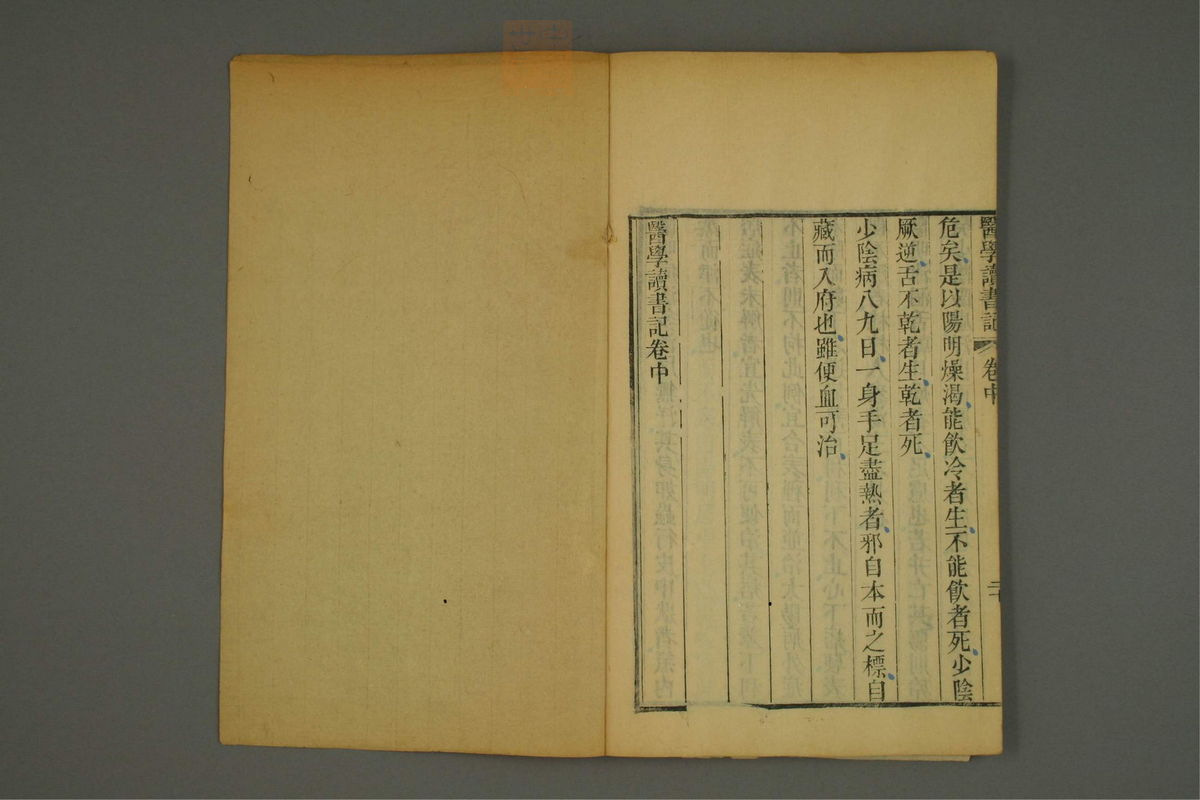 醫學讀書記 卷中
危矣是以陽明燥渴能飲冷者生不能飲者死少陰
厥逆舌不乾者生乾者死
少陰病八九日一身手足盡熱者邪自本而之標自
藏而入府也雖便血可治
醫學讀書記卷中